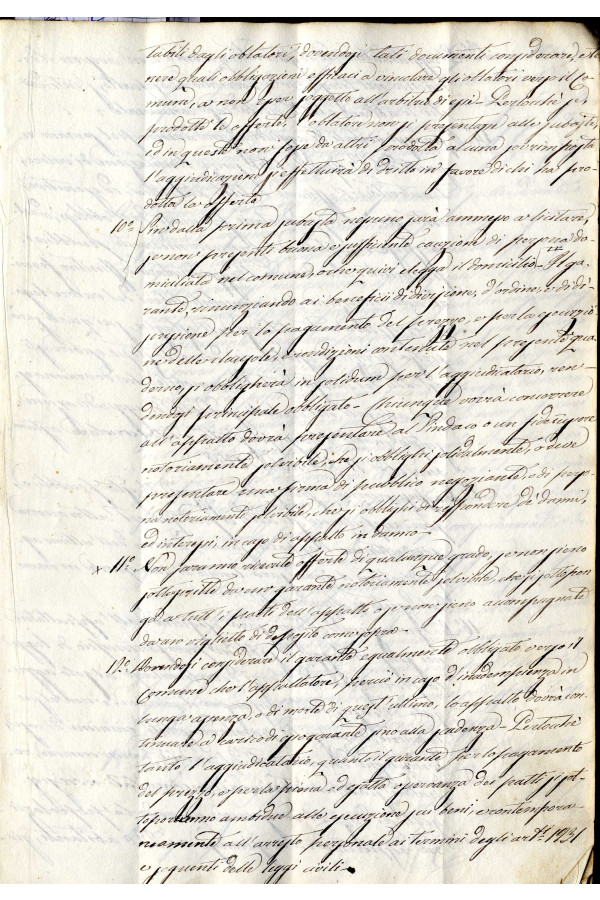 tabili dagli oblatori, dovendosi tali documenti considerare, e te
nere quali obbligazioni efficaci a vincolare gli oblatori verso il Co
mune, e non esser soggette all'arbitrio di essi - Perlocchè se,
prodotte le offerte, l'oblatore non si presentasse alle subaste,
ed in queste non fosse da altri prodotta alcuna sovrimposta
l'aggiudicazione si effettuirà di dritto in favore di chi ha pro-
dotta la offerta
10.° Fin dalla prima subasta nessuno sarà ammesso a licitare,
se non presenti buona e sufficiente cauzione di persona do-
miciliata nel comune, o che quivi elegga il domicilio - Il ga-
rante, rinunziando ai beneficii di divisione, d'ordine, e di di-
scussione per lo pagamento del prezzo, e per la esecuzio
ne delle clausole, e condizioni contenute nel presente qua
derno, si obbligherà in solidum per l'aggiudicatario, ren-
dendosi principale obbligato - Chiunque vorrà concorrere
all'appalto dovrà presentare al Sindaco o un fidejussore
notoriamente solvibile, che si obblighi solidalmente, o deve
presentare una firma di pubblico negoziante, o di perso
na notoriamente solvibile, che si obblighi di rispondere de' danni,
ed interessi, in caso di appalto in danno -
x 11.° Non saranno ricevute offerte di qualunque grado, se non sieno
sottoscritte da un garante notoriamente solvibile, che si sottopon
ga a tutt'i patti dell'appalto e se non sieno accompagnate
da un viglietto di deposito come sopra -
12.° Dovendosi considerare il garante egualmente obbligato verso il
Comune che l'appaltatore, perciò in caso d'inadempienza, in
lunga assenza, o di morte di quest'ultimo, lo appalto dovrà con
tinuare a carico di esso garante fino alla scadenza - Perlocchè
tanto l'aggiudicatario, quanto il garante per lo pagamento
del prezzo, e per la piena ed esatta osservanza dei patti si sot-
toporranno ambidue alla esecuzione sui beni, e contempora-
neamente all'arresto personale ai termini degli art.li 1931
e seguenti delle leggi civili -